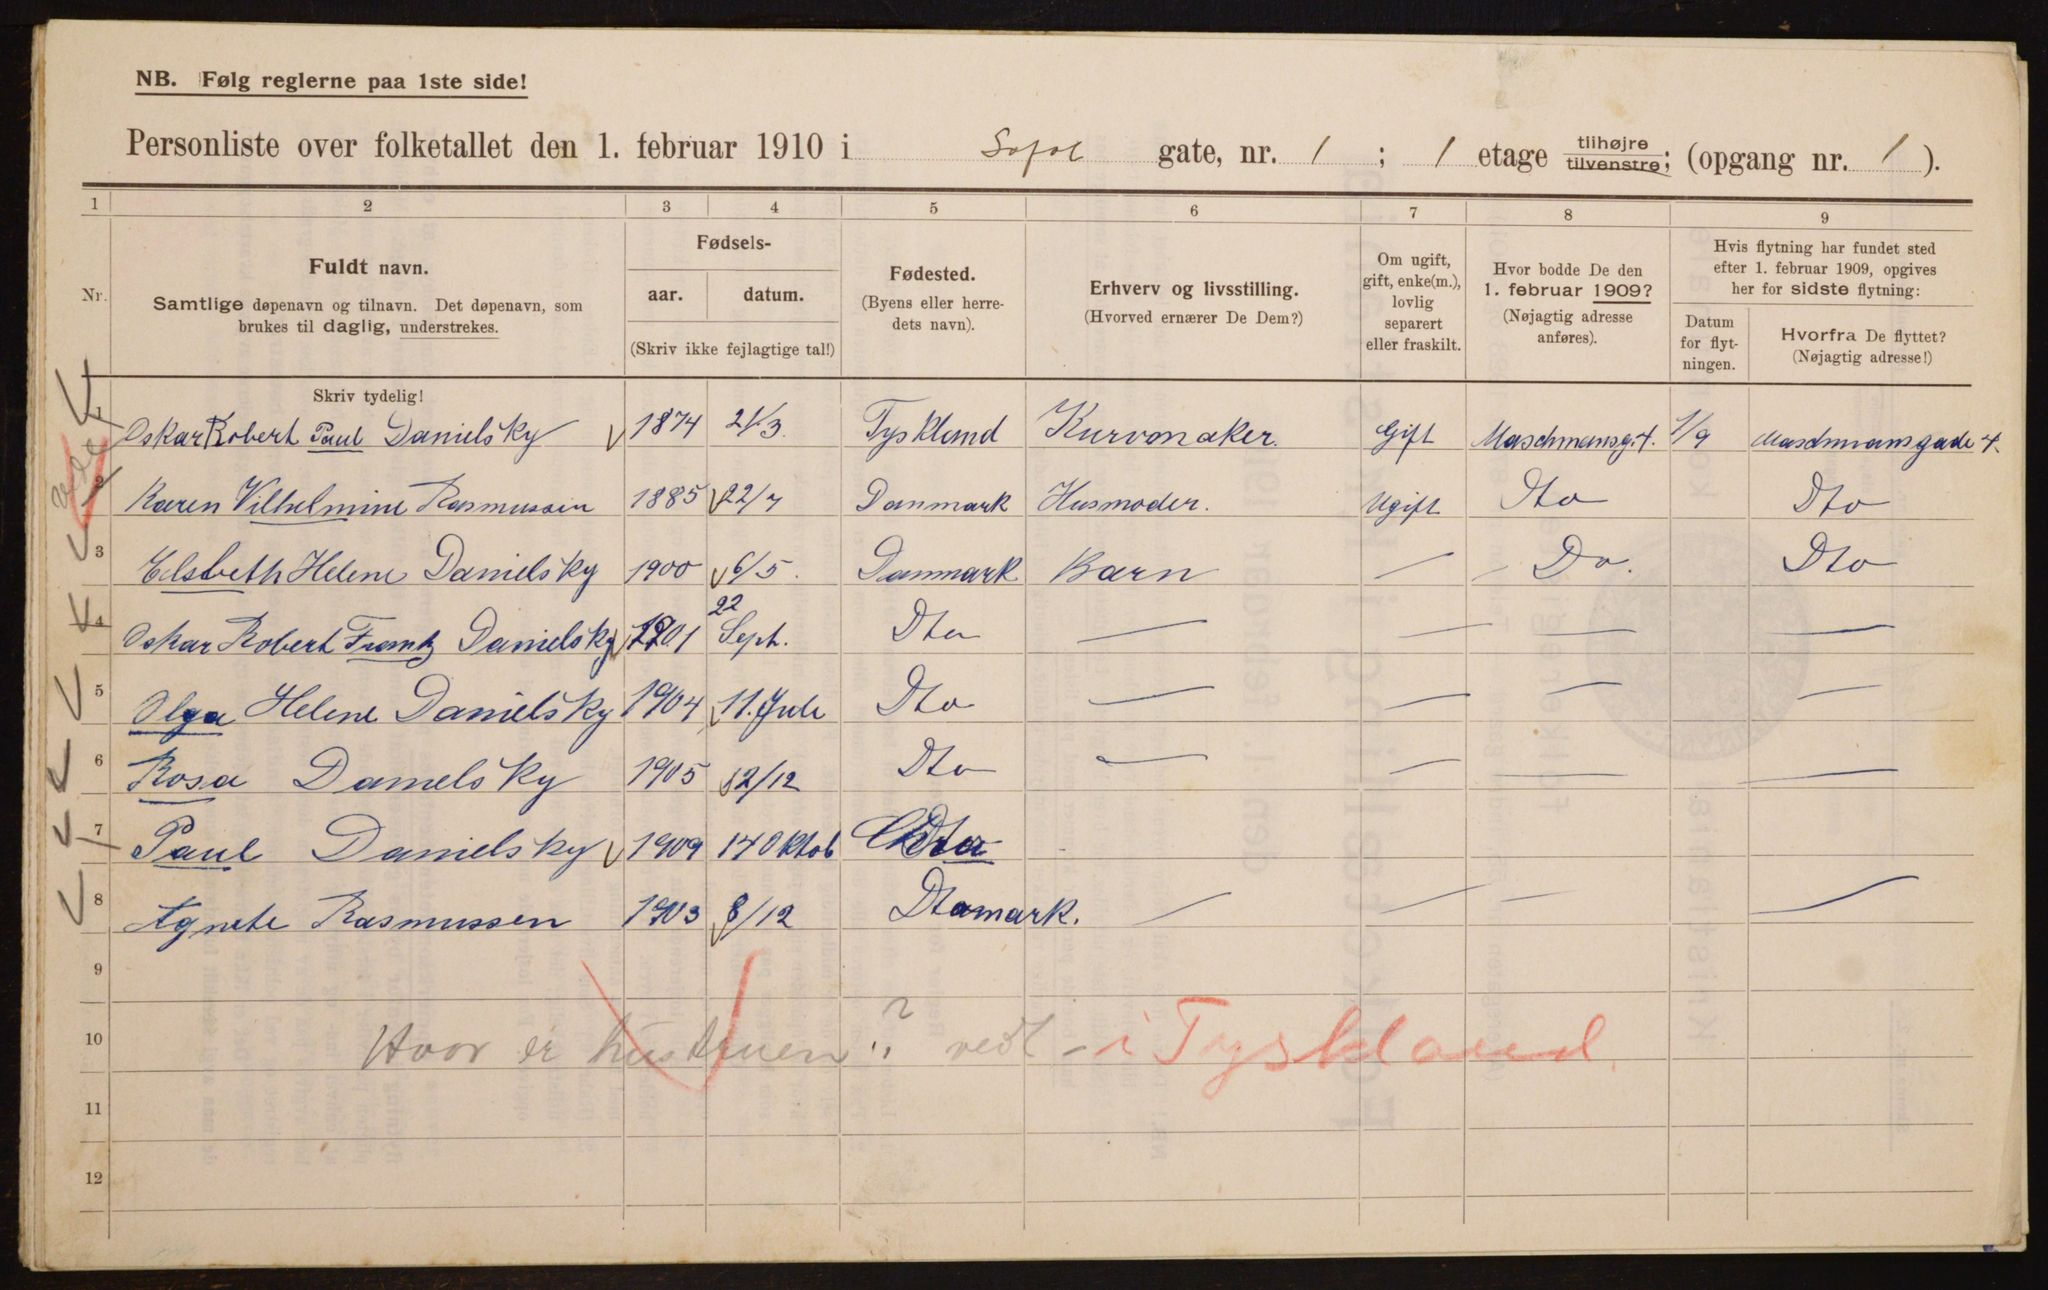 NB. Følg reglerne paa 1ste side!
Personliste over folketallet den 1. februar 1910 i gate, nr. 1 ; 1 etage tilhøjre tilvenstre; (opgang nr. 1 ).
1 2 3 4 5 6 7 8 9
Nr.
Fuldt navn.
Samtlige døpenavn og tilnavn. Det døpenavn, som
brukes til daglig, understrekes.
Fødsels-
aar. datum.
(Skriv ikke fejlagtige tal!)
Fødested.
(Byens eller herre-
dets navn).
Erhverv og livsstilling.
(Hvorved ernærer De Dem?)
Om ugift,
gift, enke(m.),
lovlig
separert
eller fraskilt.
Hvor bodde De den
1. februar 1909?
(Nøjagtig adresse
anføres).
Hvis flytning har fundet sted
efter 1. februar 1909, opgives
her for sidste flytning:
Datum
for flyt-
ningen.
Hvorfra De flyttet?
(Nøjagtig adresse!)
Skriv tydelig!
Oskar Robert Paul Danielsky 1874 21/3. Tyskland Kurvmaker. Gift Maschmansg. 4. 1/9 Maschmansgade 4.
2 Karen Vilhelmine Rasmussen 1885 22/7 Danmark Husmoder. Ugift Dto Dto
3 Elsbeth Helene Danielsky 1900 6/5. Danmark Barn — — Do. Dto
4 Oskar Robert Frantz Danielsky 1901 22 Sept. Dto — — — —
5 Olga Helene Danielsky 1904 11. Juli Dto — — — —
6 Rosa Danielsky 1905 12/12 Dto — — — —
7 Paul Danielsky 1909 14 Oktob Dto
8 Agnete Rasmussen 1903 8/12 — — — —
9
10 Hvor er hustruen? vedl - i Tyskland.
11
12